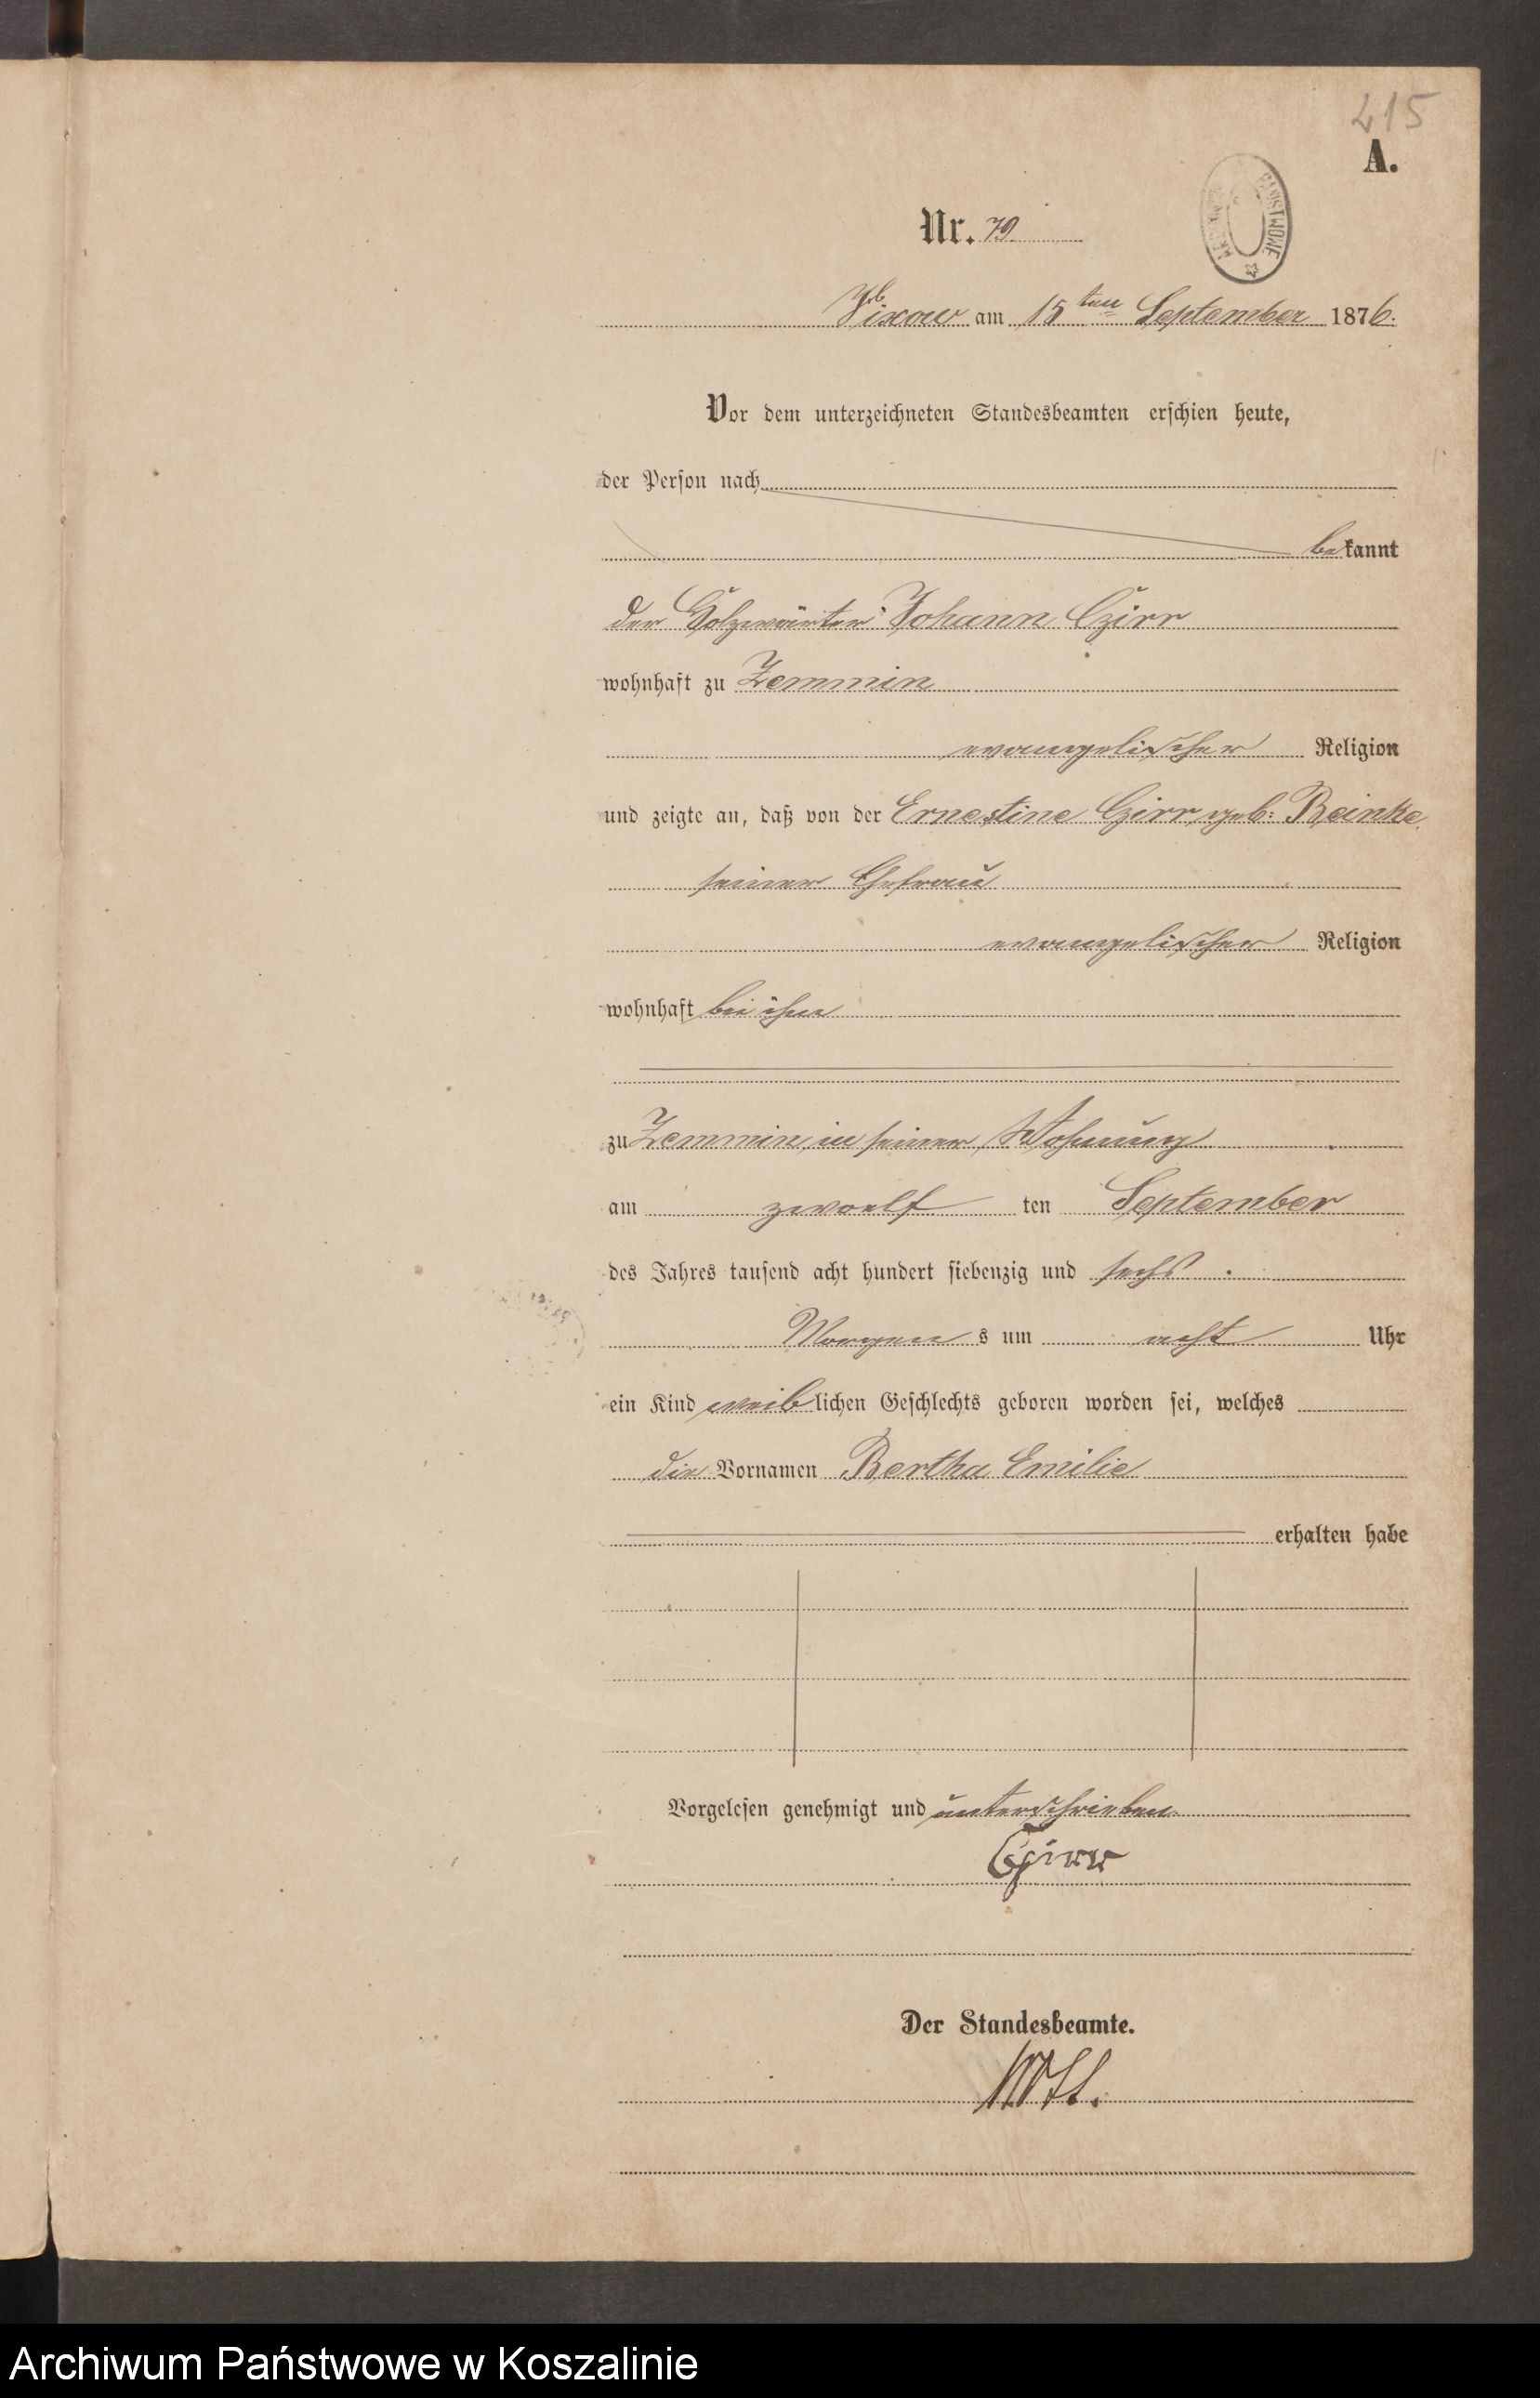 215
A.
Nr. 79
am 15 ten September 1876.
Vor dem unterzeichneten Standesbeamten erschien heute,
der Person nach
bekannt
der Holzwärter Johann Czirr
wohnhaft zu Zemmin
evangelischer Religion
und zeigte an, daß von der Ernestine Czirr geb: Reinke,
seiner Ehefrau
evangelischer Religion
wohnhaft bei ihm
zu Zemmin in seiner Wohnung
am zwoelf ten September
des Jahres tausend acht hundert siebenzig und sechs
Morgens um acht Uhr
ein Kind weiblichen Geschlechts geboren worden sei, welches
die Vornamen Bertha Emilie
erhalten habe
Vorgelesen genehmigt und unterschrieben
Czirr
Der Standesbeamte.
Archiwum Państwowe w Koszalinie